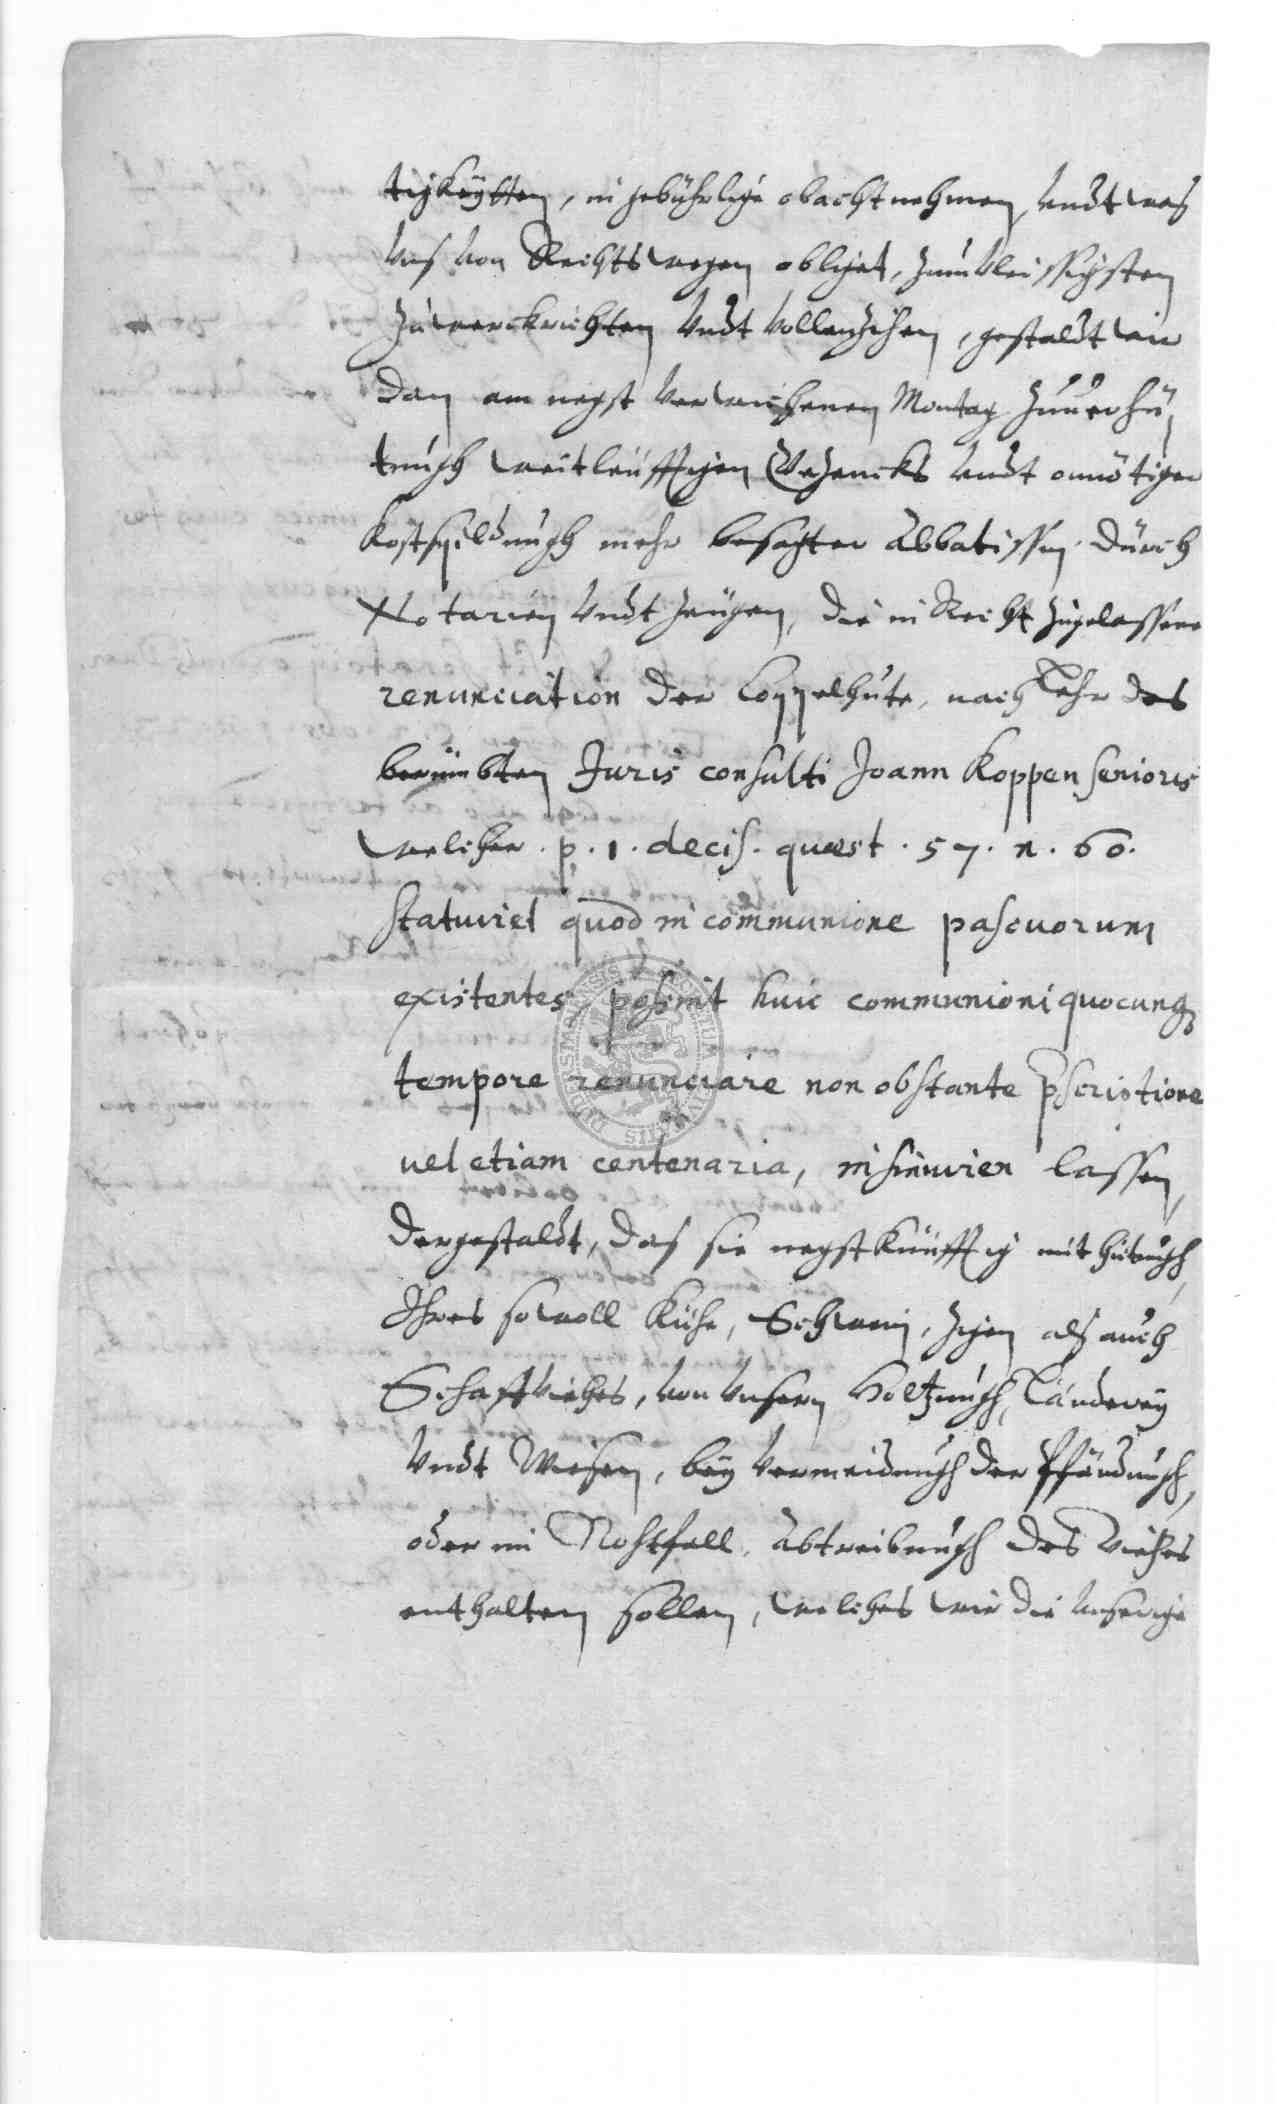 tigkeytten, in gebührlige obacht nehmen, undt was
Uns von Rechts wegen obliget, zum vleissigsten
zu werckrichten Undt vollenzihen, gestaldt wir
dan am negst verwichenen Montag zuuerhü
tungh weitleufftigen Gezencks undt onnötiger
Kostspildungh mehr besagter Abbatissin durch
Notarien Undt zeugen, die in Recht zugelassene
renunciation der Coppelhute, nach Lehr des
berümbten Juris consulti Joann Koppen Senioris
welcher . p . 1 . decis . quæst . 57 . n . 60 .
statuiret quod in communione pascuorum
existentes, possint huic communioni quocunq
tempore renunciare non obstante pscriptione
uel etiam centenaria, insinuiren lassen,
dergestaldt, das sie negstkünfftig mit hütungh,
Ihres sowoll Kühe, Schwein, Zigen als auch
Schaffviehes, von Unsern Holtzungh, Länderey
Undt Wiesen, bey vermeidungh der Pfändungh,
oder im Nohtfall, abtreibungh des Viehes
enthalten sollen, welches wir die Unserige